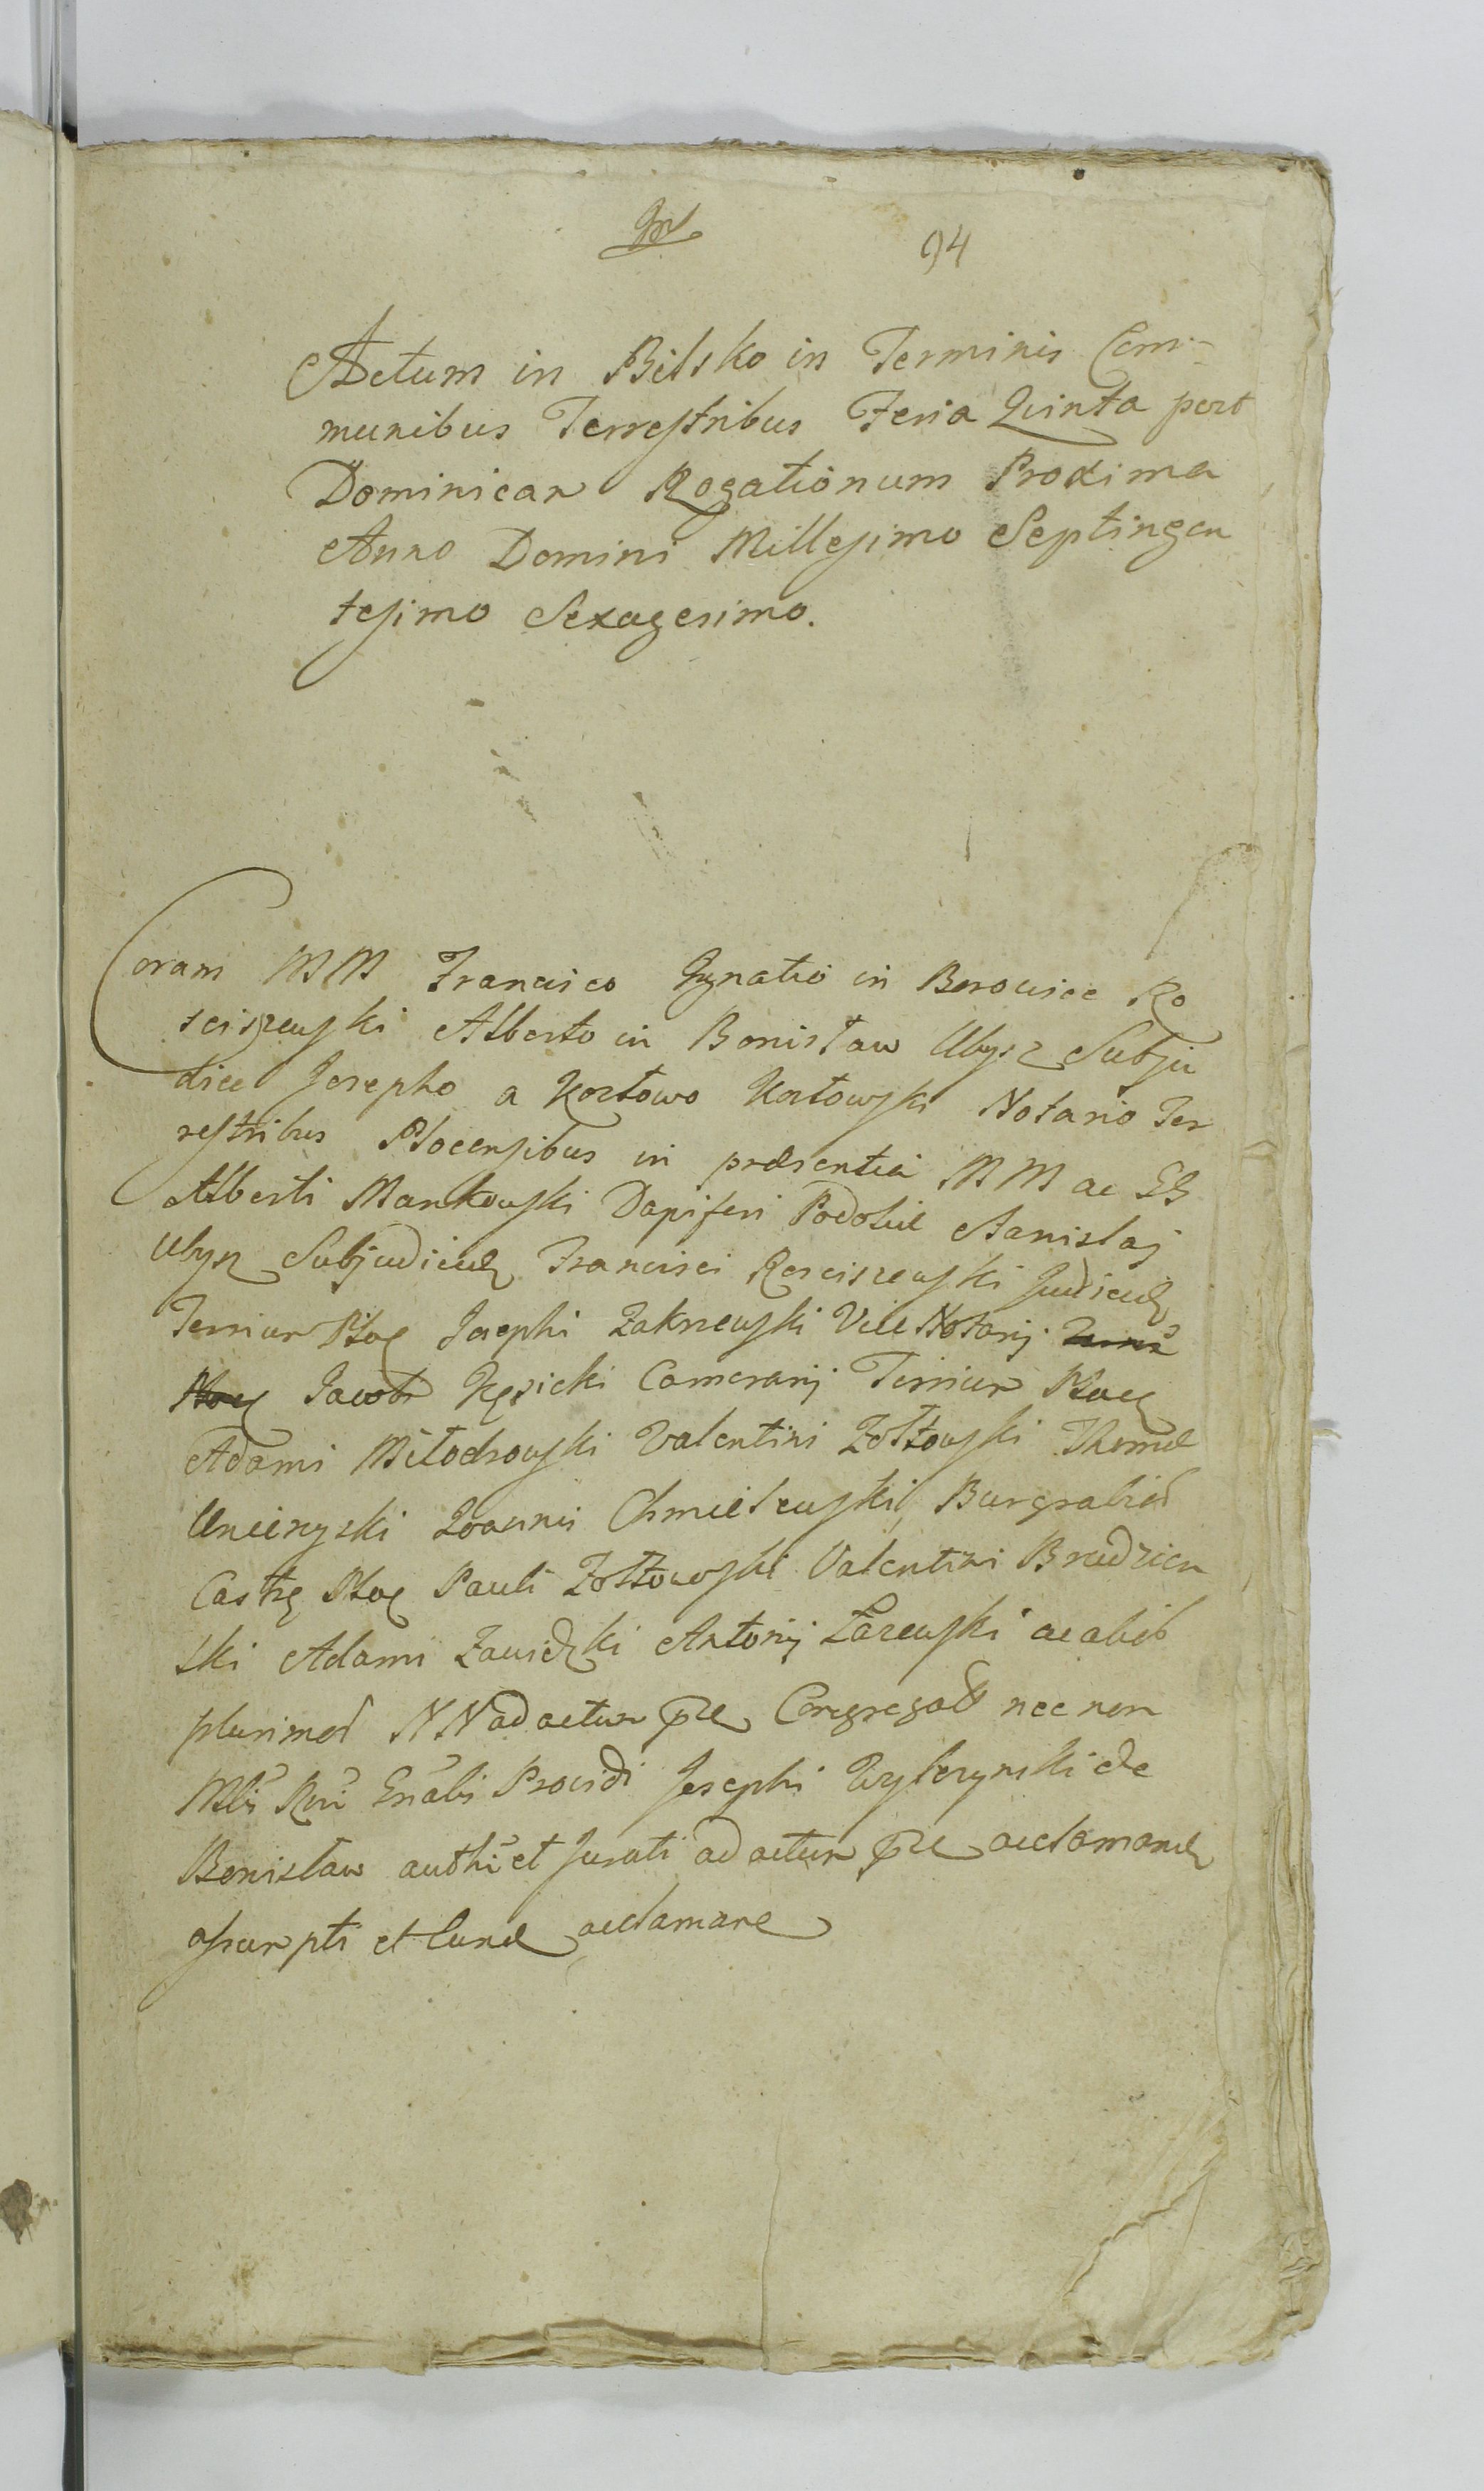 94
Actum in Bilsko in Terminis Com-
munibus Terrestribus Feria Quinta post
Dominicam Rogationum Proxima
Anno Domini Millesimo Septingen
tesimo Sexagesimo.
Coram MM Francisco Ignatio in Borowice Ro
sciszewski Alberto in Bonisław Ubysz Subju
dice Josepho a Kozłowo Kozłowski Notario Ter
restribus Plocensibus in præsentia MM ac GG
Alberti Mankowski Dapiferi Podoliæ Stanislaj
Ubysz Subjudicis Francisci Rosciszewski Judicis
Terrium Ploc Josephi Zakrzewski Vice Notarij
Ploc Jacobi Kęsicki Camerarij Terrium Ploc
Adami Miłodrowski Valentini Żołtowski Thomæ
Unierzyski Joannis Chmielewski Burgrabior
Castr Ploc Pauli Żołtowski Valentini Brudzien
ski Adami Zawidzki Antonij Łazewski ac alior
plurimor NN ad actum Congregat nec non
Mlis Rni Gnalis Providi Josephi de
Bonisław authi et Jurati ad actum acclamand
assumpti et Curiæ acclamare